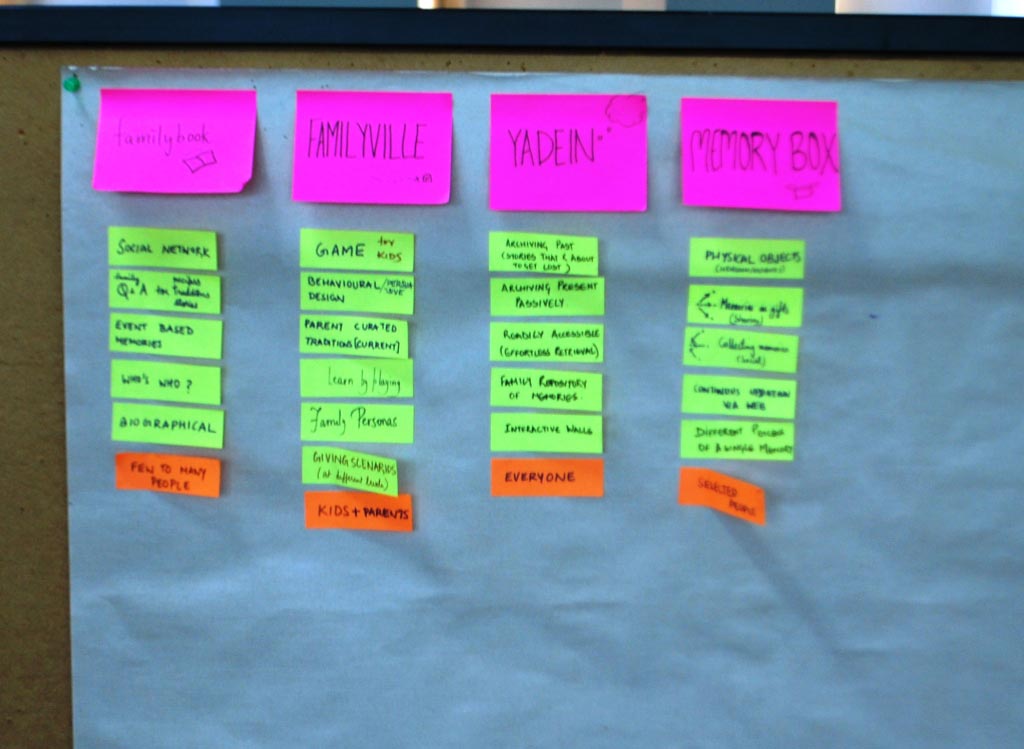 familybook
SOCIAL NETWORK
family recipes
Q&A for Traditions
stories
EVENT BASED
MEMORIES
WHO'S WHO?
BIOGRAPHICAL
FEW TO MANY
PEOPLE
FAMILYVILLE
GAME for
KIDS
BEHAVIOURAL/
DESIGN
PARENT CURATED
TRADITIONS [CURRENT]
Learn by Playing
Family Personas
GIVING SCENARIOS
(at different levels)
KIDS + PARENTS
YADEIN
ARCHIVING PAST
(STORIES THAT R ABOUT
TO GET LOST)
ARCHIVING PRESENT
PASSIVELY
READILY ACCESSIBLE
(EFFORTLESS RETRIEVAL)
FAMILY REPOSITORY
OF MEMORIES.
INTERACTIVE WALLS
EVERYONE
MEMORY BOX
PHYSICAL OBJECTS
Memories as gifts
(Sharing)
Collecting memories
CONTINUOUS UPDATION
VIA WEB
DIFFERENT
OF A SINGLE MEMORY
SELECTED
PEOPLE